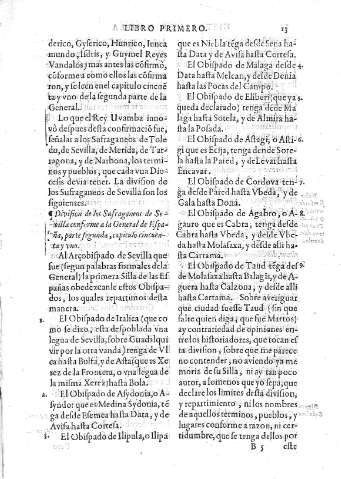 LIBRO PRIMERO. 13
derico, Gyserico, Hunrico, Junca
mundo, Isdris, y Guymel Reyes
Vandalos) mas antes las cōfirmò,
cōforme a como ellos las cōfirma
ron, y se lee en el capitulo cincuē
ta y vno de la segunda parte de la
General.
Lo que el Rey Vvamba inno
vò despues desta confirmació fue,
señalar a los Sufraganeos de Tole
do, de Sevilla, de Merida, de Tarra
gona, y de Narbona, los termi
nos y pueblos, que cada vna Dio
cesis devia tener. La division de
los Sufraganeos de Sevilla son los
siguientes.
¶ Division de los Sufraganeos de Se
villa conforme a la General de Espa
ña, parte segunda, capitulo cincuen
ta y vno.
Al Arçobispado de Sevilla que
fue (segun palabras formales de la
General) la primera Silla de las Es
pañas obedexcanle estos Obispa
dos, los quales repartimos desta
manera.
1. El Obispado de Italica (que co
mo se dixo, esta despoblada vna
legua de Sevilla, sobre Guadalqui
vir por la otra vanda) tenga de Vl
ca hasta Busla, y de Asta (que es Xe
rez de la Frontera, o vna legua de
la misma Xerez) hasta Bola.
2. El Obispado de Asydonia, o A-
syndor que es Medina Sydonia, tē
ga desde Esemea hasta Data, y de
Avisa hasta Cortesa.
3. El Obispado de Ilipula, o Ilipa
que es Niebla tēga desde Sena ha-
sta Data y de Avisa hasta Cortesa.
El Obispado de Malaga desde 4.
Data hasta Melcan, y desde Denia
hasta las Pocas del Campo.
El Obispado de Eliberi (que ya 5.
queda declarado) tenga de de Ma
laga hasta Sotela, y de Almisa ha-
sta la Posada.
El Obispado de Astigi, o Asti- 6.
gi que es Ecija, tenga de nde Sore-
la hasta la Pared, y de Levar hasta
Encavar.
El Obispado de Cordova ten- 7.
ga desde Pared hasta Vbeda, y de
Gala hasta Dona.
El Obispado de Agabro, o A- 8.
gauro que es Cabra, tenga desde
Cabra hasta Vbeda, y desde Vbe-
da hasta Molasaxa, y desde alli ha-
sta Cartama.
El Obispado de Taud tēga des 9.
de Molasaxa hasta Balagis, y de A-
guerra hasta Calzona, y desde alli
hasta Cartama. Sobre averiguar
que ciudad fuesse Taud (sin que
falte quien diga, que fue Martos)
ay contrariedad de opiniones en-
tre los historiadores, que tocan es
ta division, sobre que me parece
no contender, no aviendo ya me
moria de su Silla, ni ay tan poco
autor, a lo menos que yo sepa, que
declare los limites desta division,
y repartimiento, ni los nombres
de aquellos términos, pueblos, y
lugares conforme a razon, ni cer-
tidumbre, que se tenga dellos por
B 5 este